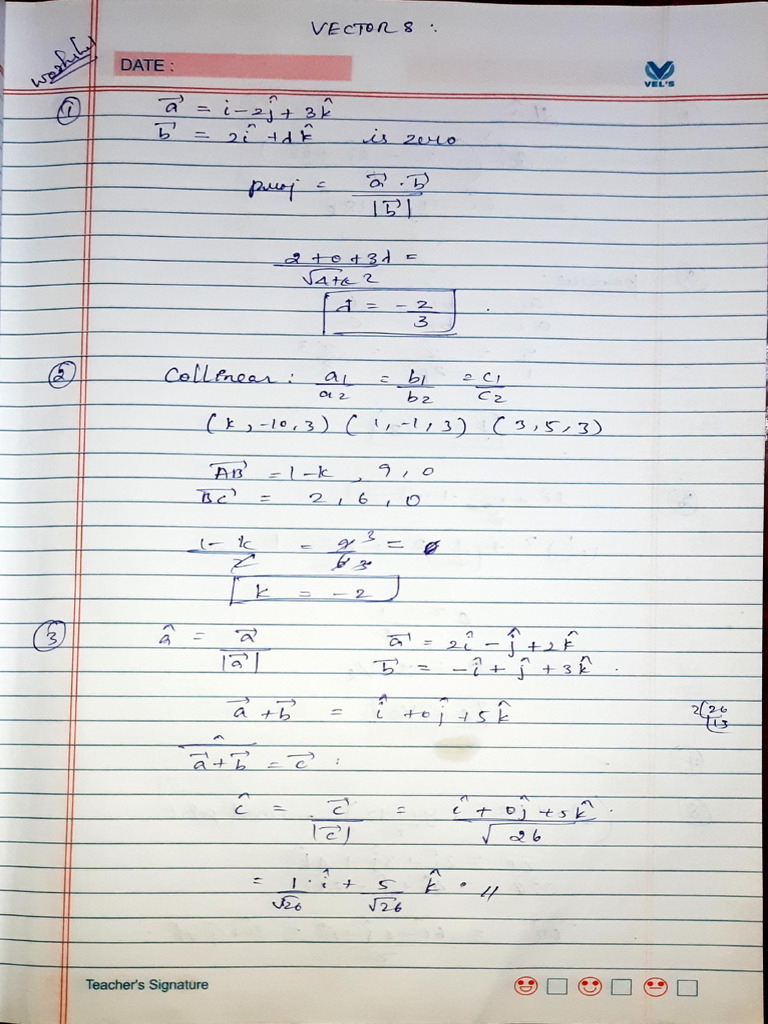 VECTOR 8 :
Worksheet
DATE :
VEL'S
① a⃗ = i - 2ĵ + 3k̂
b⃗ = 2î + λk̂ is zero
proj = a⃗ . b⃗ / |b⃗|
2 + 0 + 3λ / √4+λ2 =
λ = -2/3 .
② Collinear : a1/a2 = b1/b2 = c1/c2
(k, -10, 3) (1, -1, 3) (3, 5, 3)
AB⃗ = 1-k , 9, 0
BC⃗ = 2, 6, 0
1-k/2 = 9 3/6 3 =
k = -2
③ â = a⃗/|a⃗| a⃗ = 2î - ĵ + 2k̂
b⃗ = -î + ĵ + 3k̂ .
a⃗ + b⃗ = î + 0ĵ + 5k̂ 2 26
13
a⃗ + b⃗ = c⃗ :
ĉ = c⃗/|c⃗| = î + 0ĵ + 5k̂ / √26 .
= 1/√26 . î + 5/√26 k̂ . //
Teacher's Signature